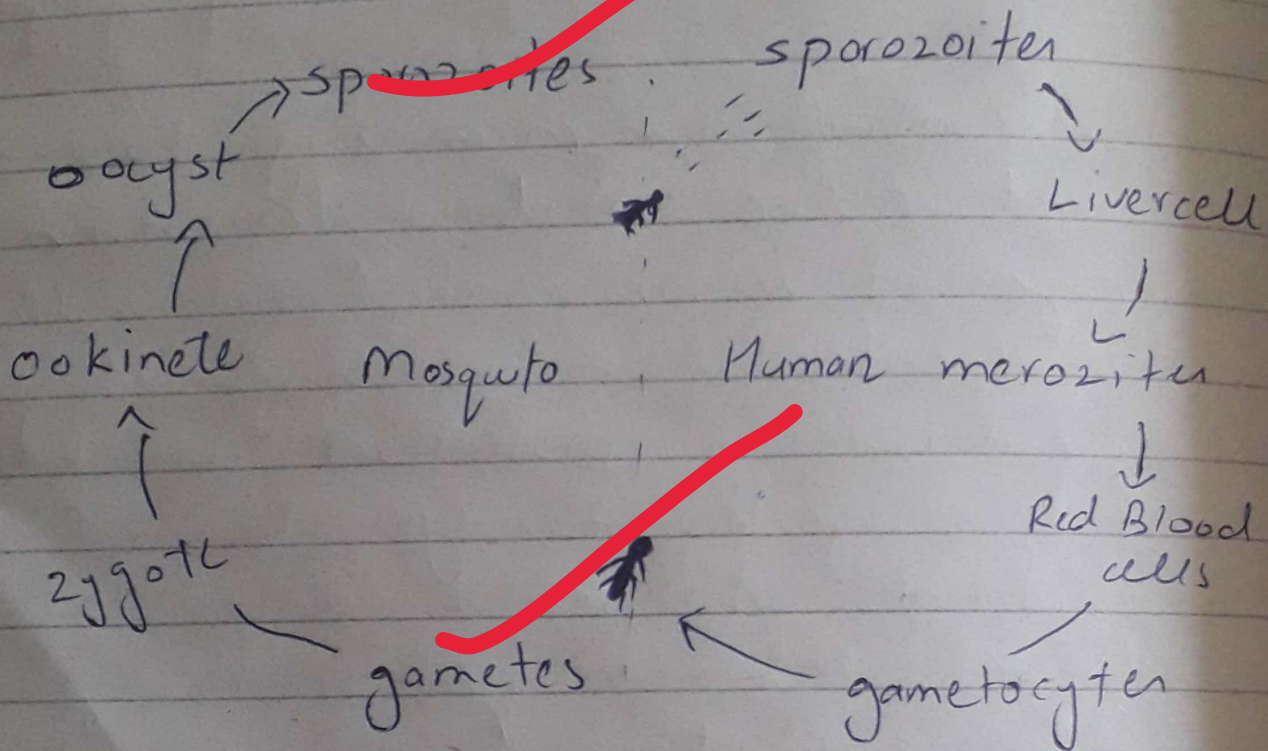 sporozoites
sporozoites
oocyst
Livercell
ookinete Mosquito Human merozites
Red Blood
cells
zygote
gametes
gametocytes